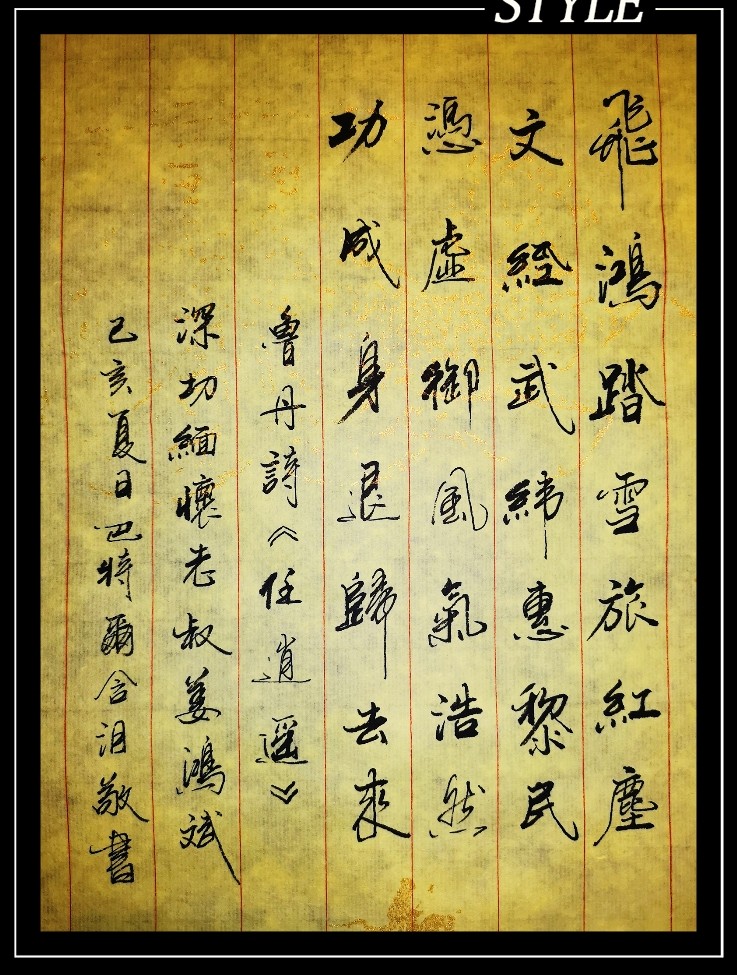 STYLE
飛鴻踏雪旅紅塵
文經武緯惠黎民
憑虛御風氣浩然
功成身退歸去來
魯丹詩《任逍遥》
深切緬懷老叔姜鴻斌
己亥夏日巴特爾含泪敬書